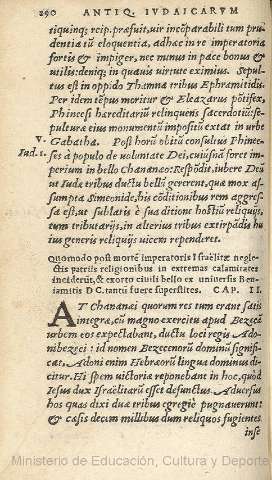 290 ANTIQ. IVDAICARVM
tiquinq; reip. præfuit, vir incõparabili tum pru-
dentia tũ eloquentia, adhæc in re imperatoria
fortis & impiger, nec minus in pace bonus &
utilis: deniq; in quauis virtute eximius. Sepul-
tus est in oppido Thamna tribus Ephraimitidis.
Per idem tẽpus moritur & Eleazarus põtifex,
Phinees hæreditariũ relinquens sacerdotiũ: se-
pulturæ eius monumentũ impositũ extat in urbe
V. Gabatha. Post horũ obitũ consultus Phinee-
Iud. 1. ses à populo de voluntate Dei, cuiusnã foret im-
perium in bello Chananæo: Respõdit, iubere Deũ
ut Iudæ tribus ductũ belli gererent, quæ mox as-
sumpta Simeonide, his cõditionibus rem aggres-
sa est, ut sublatis è sua ditione hostiũ reliquijs,
tum tributarijs, in alterius tribus extirpãdis hu
ius generis reliquijs uicem rependeret.
Quomodo post mortẽ imperatoris Israëlitæ ne-
glectis patrijs religionibus in extremas calamitates
inciderũt, & exorto ciuili bello ex uniuersis Ben-
iamitis D C. tantũ fuere superstites. CAP. II.
AT Chananæi quorem res tum erant satis
integræ, cũ magno exercitu apud Bezecẽ
urbem eos expectabant, ductu loci regis Ado-
nibezeci: id nomen Bezecenorũ dominũ signifi-
cat, Adoni enim Hebræorũ lingua dominus di-
citur. Hi spem victoriæ reponebant in hoc, quòd
Iesus dux Israëlitarũ esset defunctus. Aduersus
hos quas dixi duæ tribus egregiè pugnauerunt:
& cæsis decim millibus dum reliquos fugientes
inse
Ministerio de Educación, Cultura y Deporte